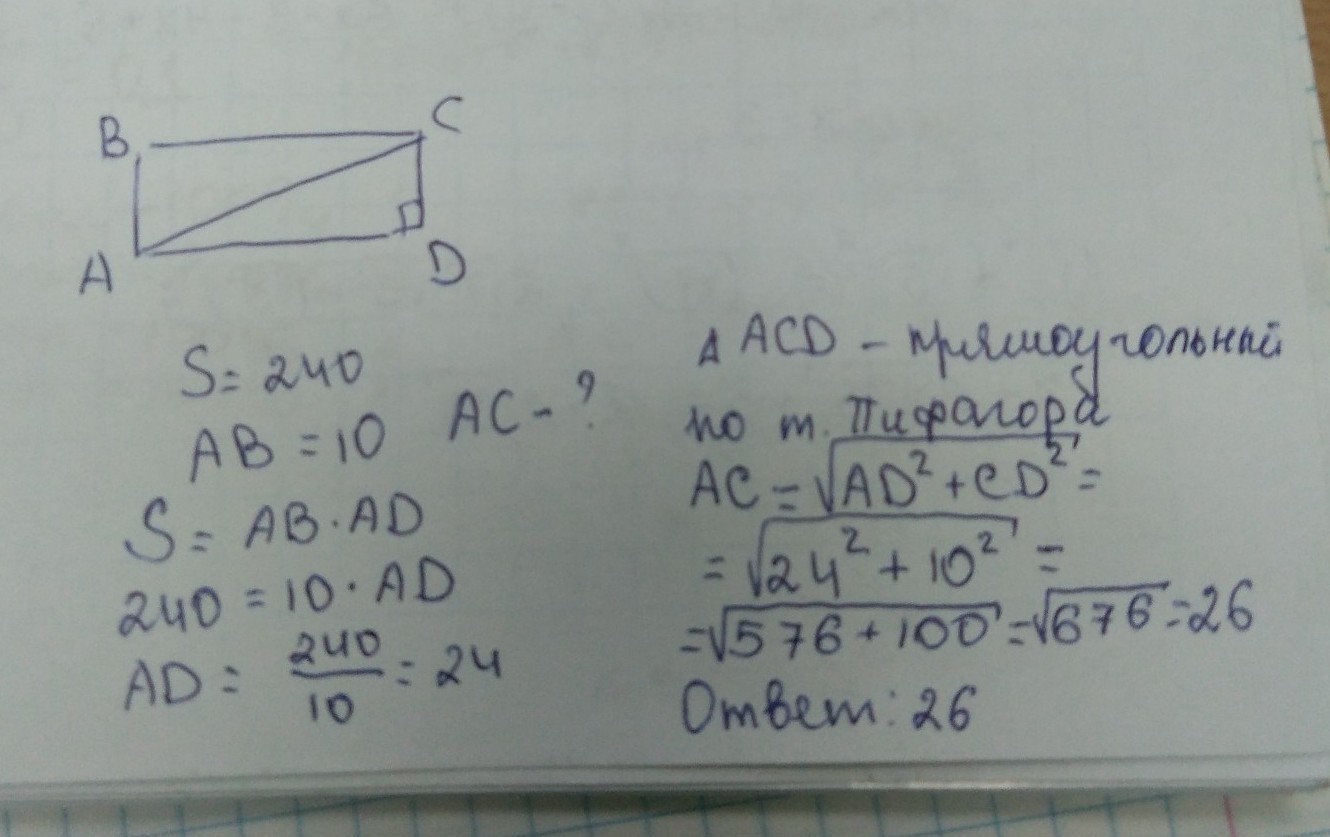 B
C
A
D
S = 240
AB = 10 AC - ?
S = AB · AD
240 = 10 · AD
AD = 240/10 = 24
Δ ACD - прямоугольный
по т. Пифагора
AC = √AD² + CD² =
= √24² + 10² =
= √576 + 100 = √676 = 26
Ответ: 26